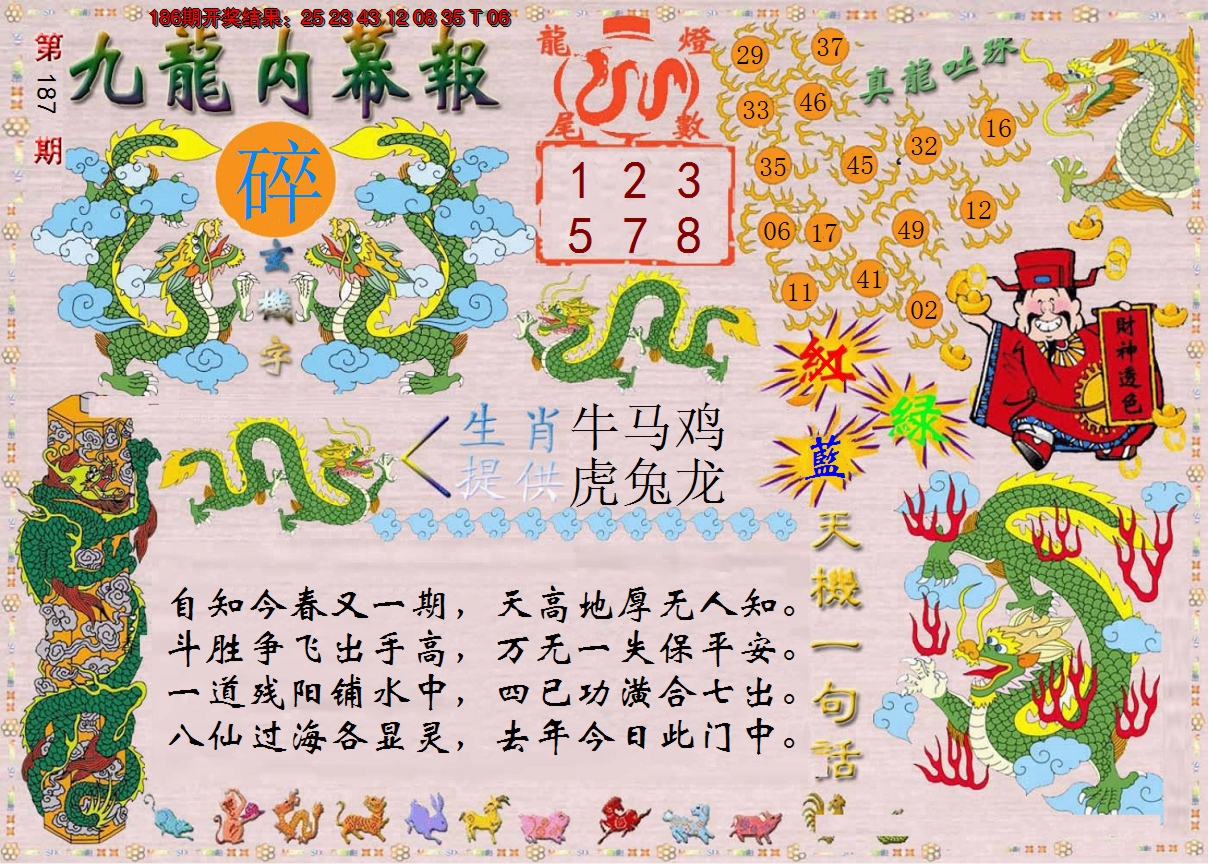 186期开奖结果：25 23 43 12 08 35 T 06
第187期
九龍内幕報
碎
玄機字
龍燈
尾數
1 2 3
5 7 8
真龍吐珠
29 37
33 46
35 45 32 16
06 17 49 12
11 41 02
財神透色
紅
綠
藍
生肖 牛马鸡
提供 虎兔龙
天機一句話
自知今春又一期，天高地厚无人知。
斗胜争飞出手高，万无一失保平安。
一道残阳铺水中，四已功潢合七出。
八仙过海各显灵，去年今日此门中。